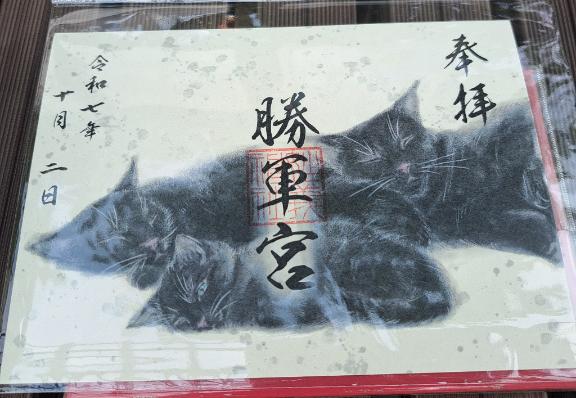 奉拝
勝軍宮
令和七年
十月二日